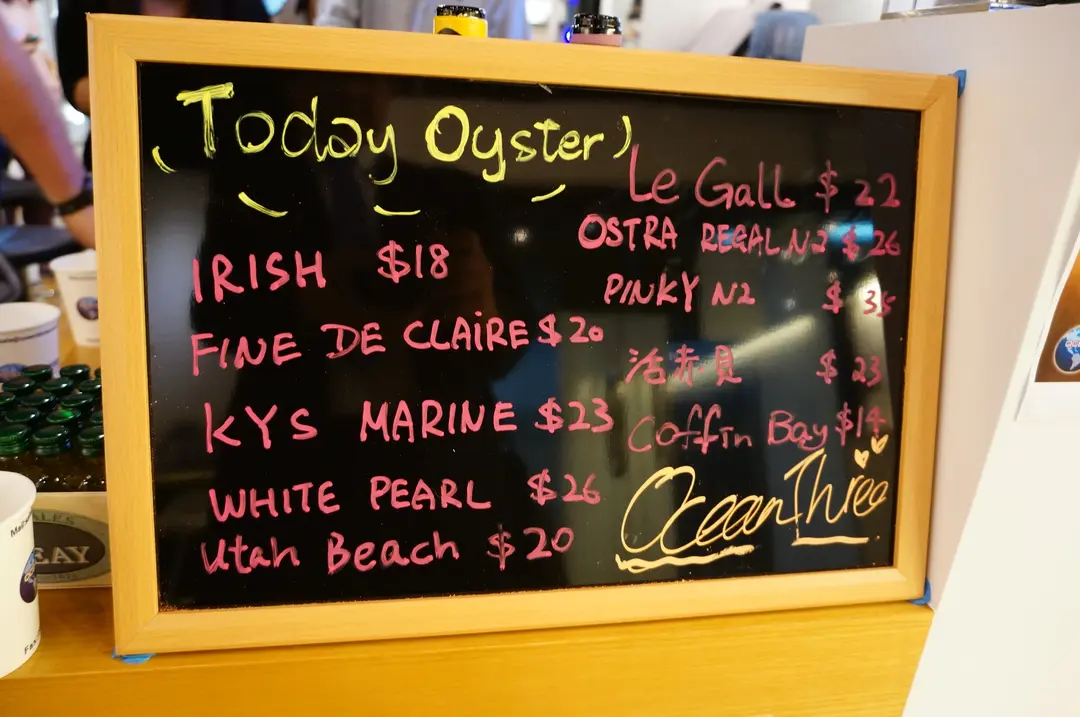 Today Oyster
IRISH $18
FINE DE CLAIRE $20
KYS MARINE $23
WHITE PEARL $26
Utah Beach $20
Le Gall $22
OSTRA REGAL N2 $26
PINKY N2 $35
活赤貝 $23
Coffin Bay $14
OceanThree